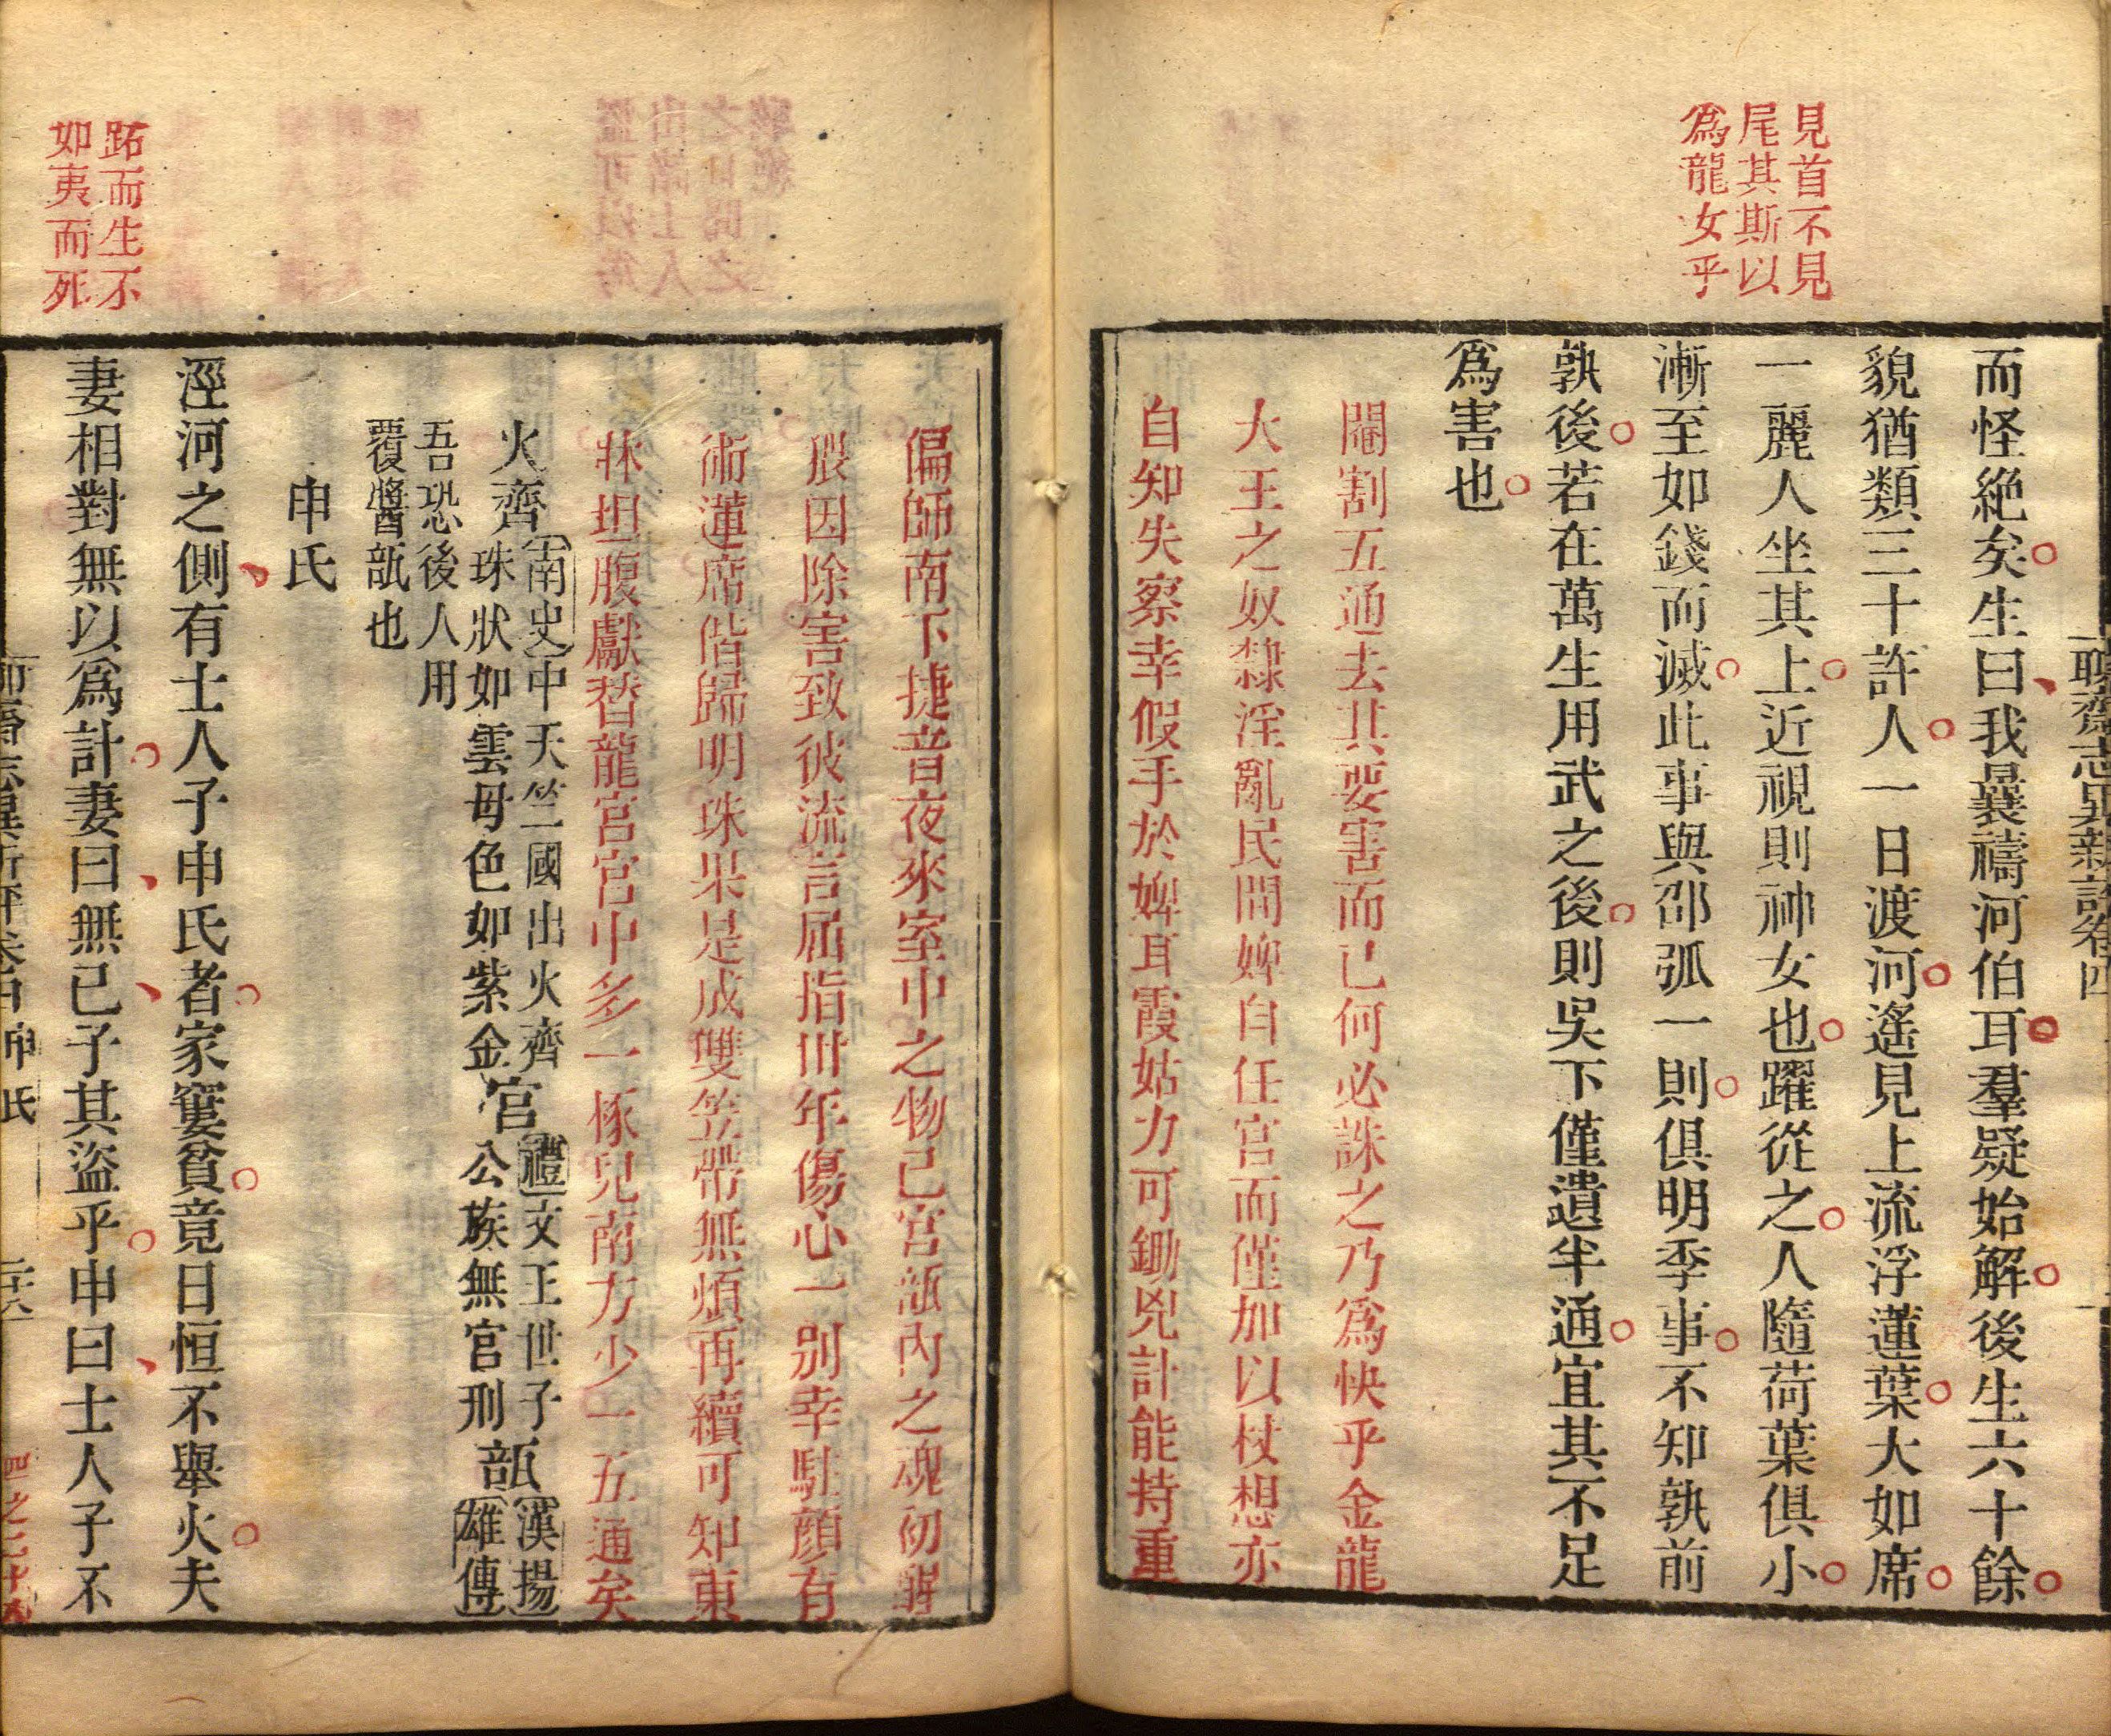 聊齋志異新評卷四
見首不見
尾其斯以
爲龍女乎
而怪絶矣生曰我曩禱河伯耳羣疑始解後生六十餘
貌猶類三十許人一日渡河遙見上流浮蓮葉大如席
一麗人坐其上近視則神女也躍從之人隨荷葉俱小
漸至如錢而滅此事與邵弧一則俱明季事不知孰前
孰後若在萬生用武之後則吳下僅遺半通宜其不足
爲害也
閹割五通去其要害而已何必誅之乃爲快乎金龍
大王之奴隸淫亂民間婢自任宫而僅加以杖想亦
自知失察幸假手於婢耳霞姑力可鋤兇計能持重
偏師南下捷音夜來室中之物已宫瓿內之魂初醒
猥因除害致彼流言屈指卅年傷心一別幸駐顏有
術蓮席偕歸明珠果是成雙笠帶無煩再續可知東
牀坦腹獻替龍宮宮中多一椓兒南方少一五通矣
火齊南史中天竺國出火齊
珠狀如雲母色如紫金
宮禮文王世子
公族無官刑
瓿漢揚
雄傳
吾恐後人用
覆醬瓿也
申氏
涇河之側有士人子申氏者家窶貧竟日恒不舉火夫
妻相對無以爲計妻曰無已子其盜乎申曰士人子不
跖而生不
如夷而死
聊齋志異新評卷四 申氏